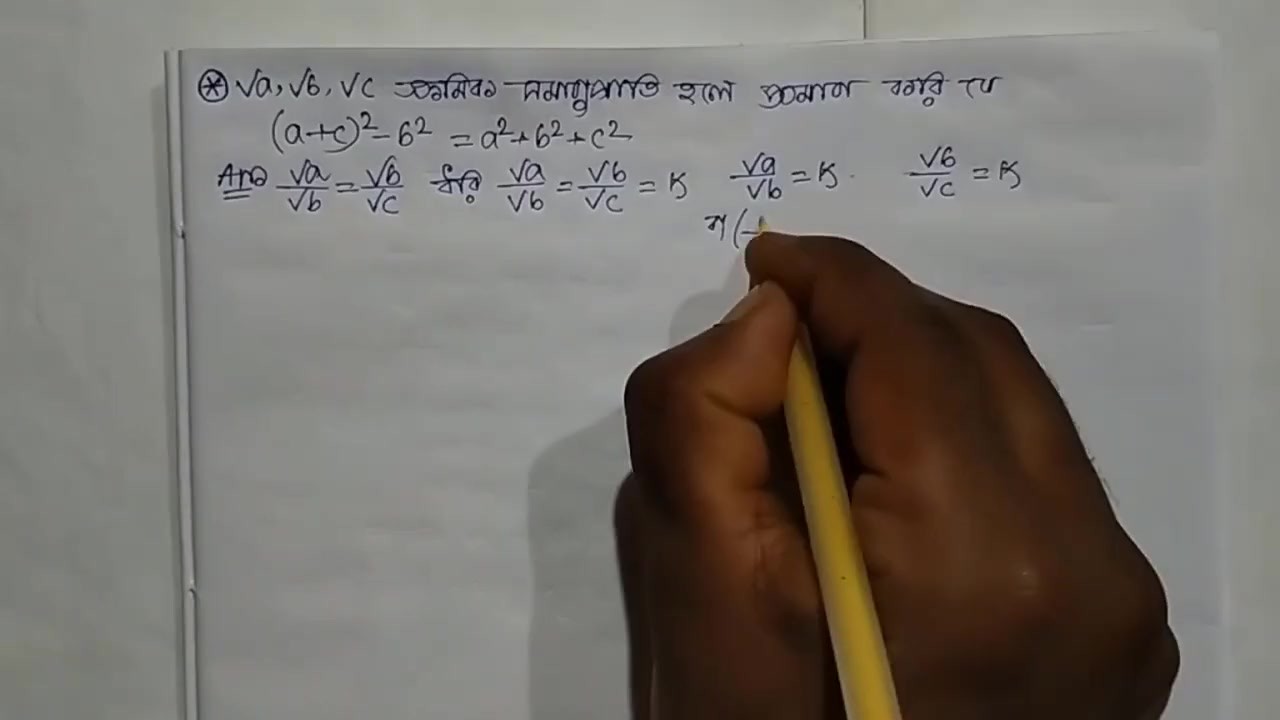 ⊛ √a, √b, √c ক্রমিক সমানুপাতি হলে প্রমাণ করি যে
(a+c)² - b² = a² + b² + c²
Ans √a/√b = √b/√c ধরি √a/√b = √b/√c = K √a/√b = K. √b/√c = K
বা (